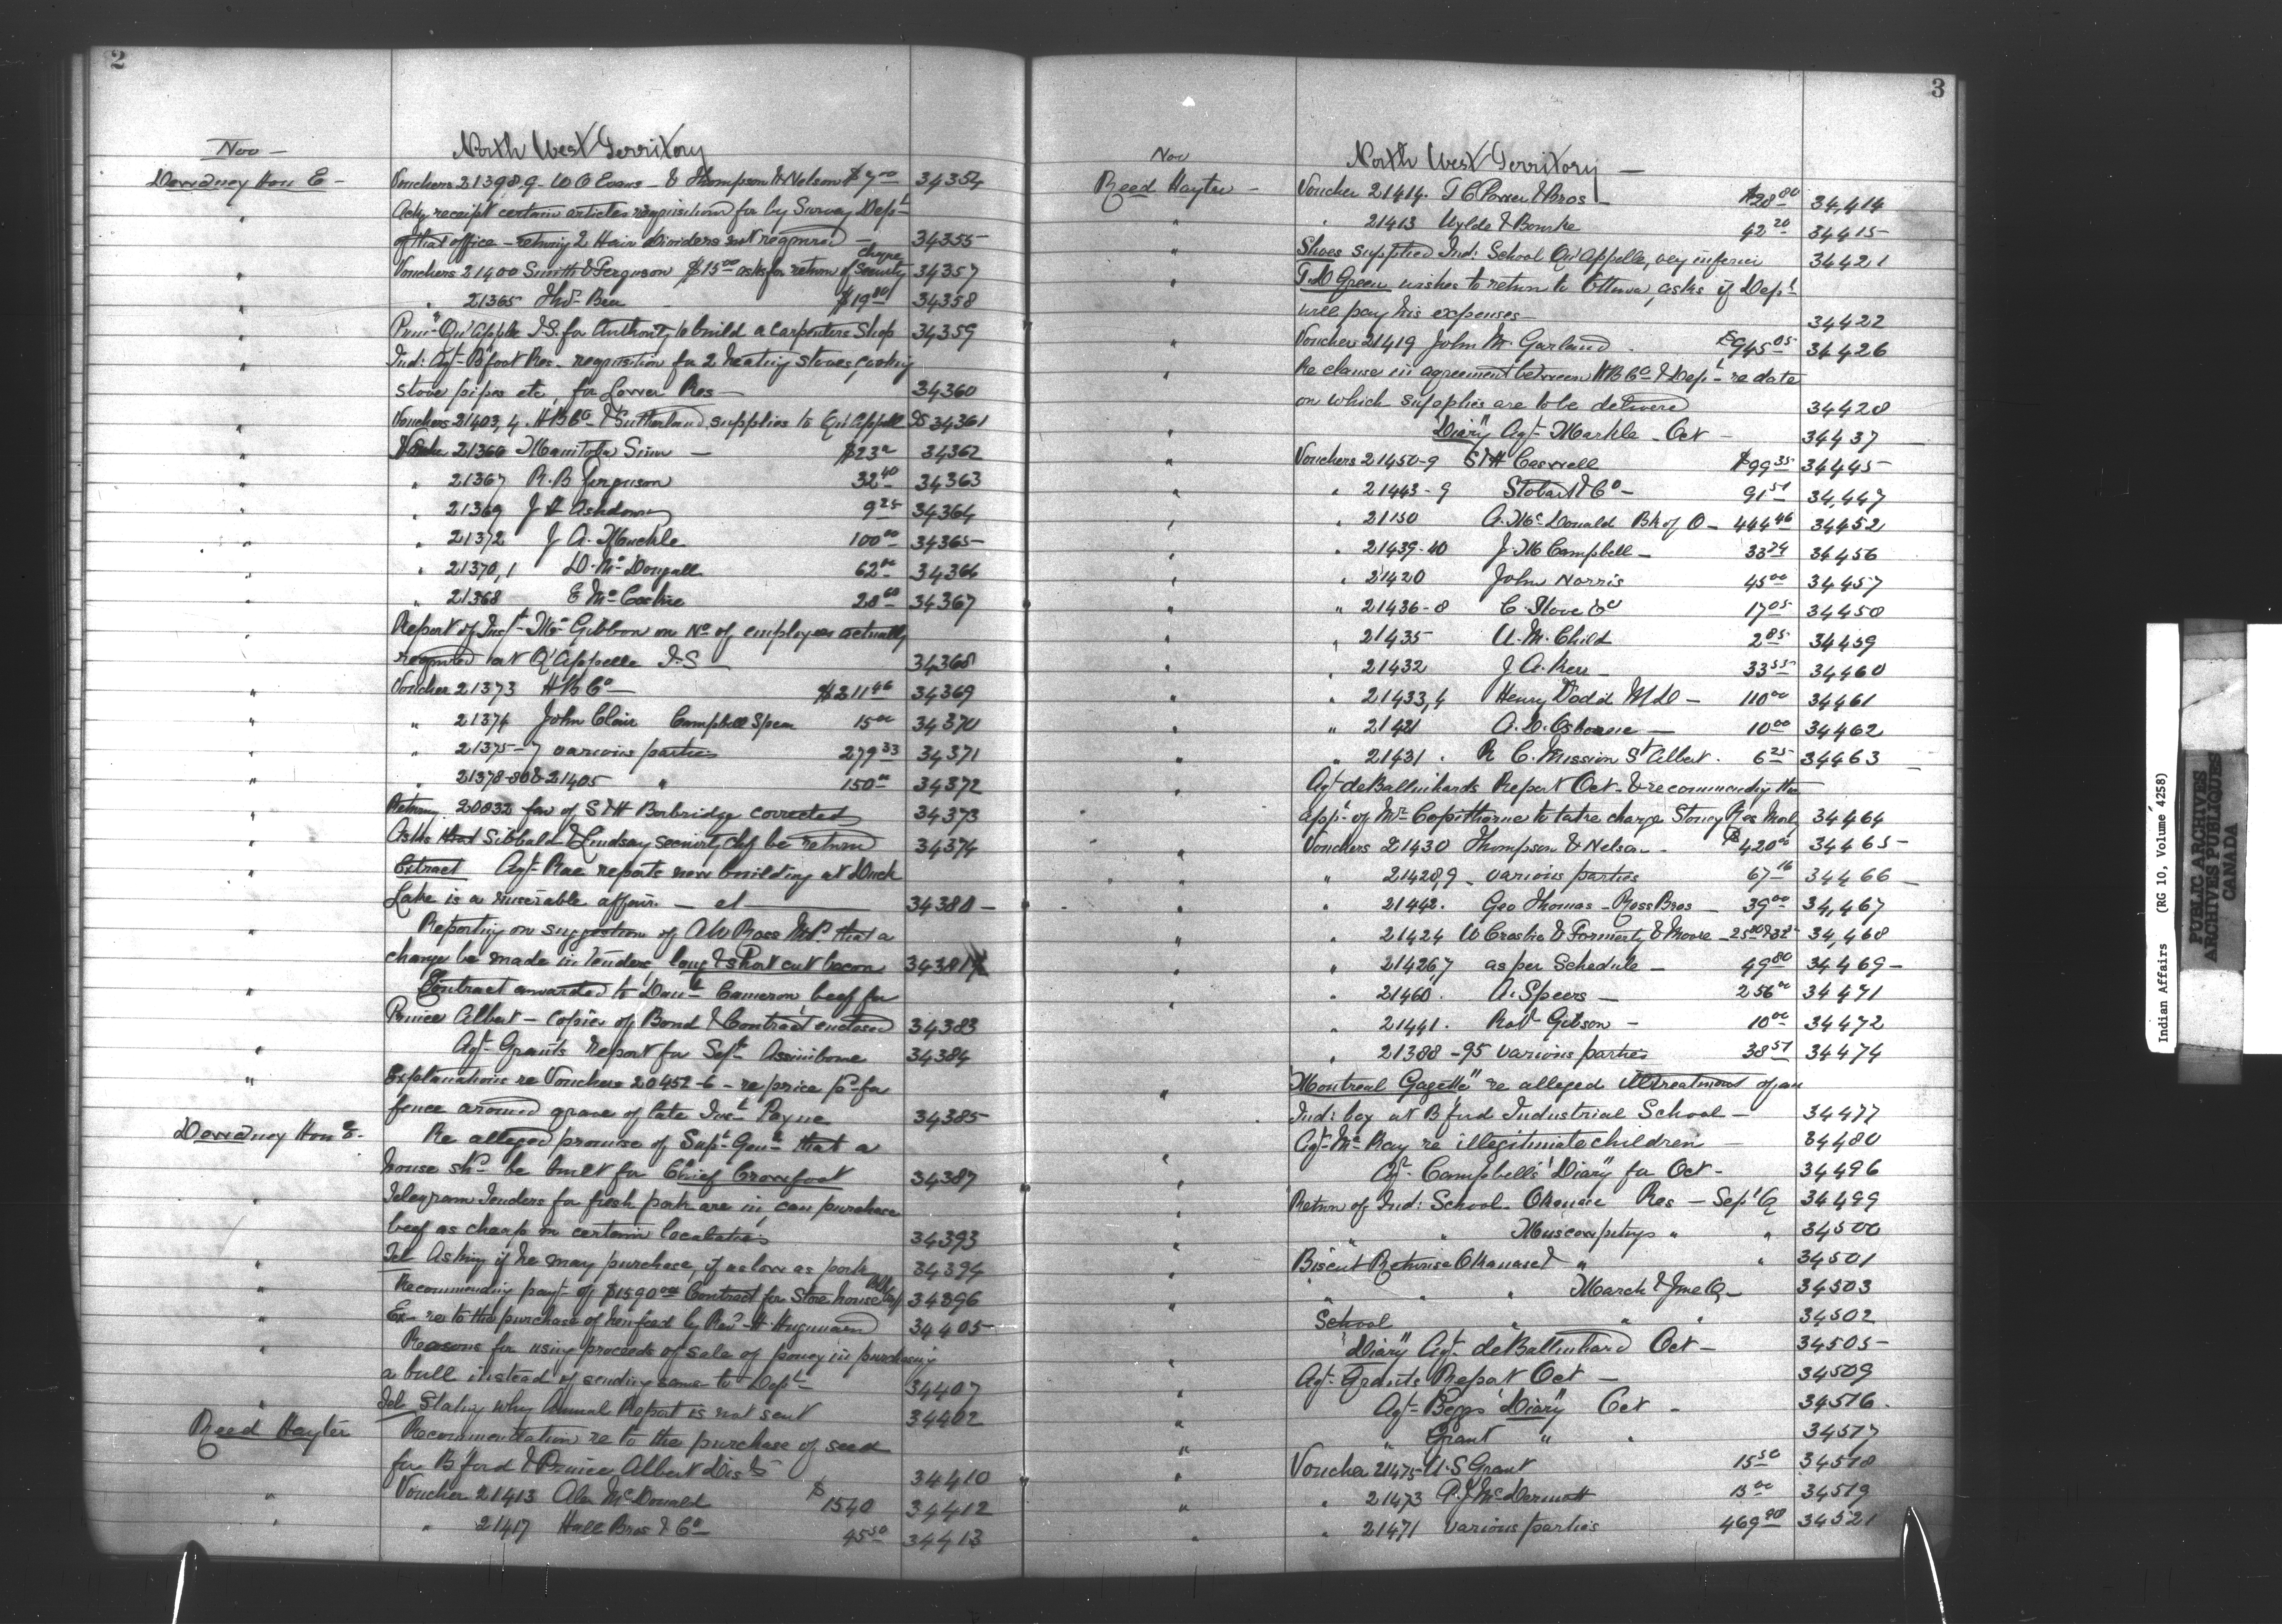 2
Nov —
North West Territory
Dewdney Hon E — Vouchers 21398,9 - W O Evans - & Thompson & Nelson $7 00 34354
" Ackg receipt certain articles requisitioned for by Survey Dept
of that office - returng 2 Hair dividers not required — 34355
" Vouchers 21400 Smith & Ferguson $15 00 asks for return of Security cheque 34357
" " 21365 Thos Bea $19 80 34358
" Prin. Qu'Appelle I.S. for Authority to build a Carpenters Shop 34359
" Ind: Agt B'foot Res - requisition for 2 heating stoves, cooking
stove pipes etc, for Lower Res — 34360
" Vouchers 21403,4. H B Co & Sutherland supplies to Qu'Appelle IS 34361
" 21366 Manitoba Sun — $23 34362
" " 21367 R. B Ferguson 32 40 34363
" " 21369 J H Ashdown 9 25 34364
" " 21372 J A. Markle 100 00 34365
" " 21370,1 D. McDougall 62 00 34366
" " 21368 E McCaskie 28 60 34367
" Report of Inspt McGibbon on No of employees actually
required at Q'Appelle I.S — 34368
" Voucher 21373 H B Co — $311 46 34369
" " 21374 John Clair Campbell Spera 15 00 34370
" " 21375-7 various parties 279 33 34371
" " 21378-80 & 21405 " 150 00 34372
" Returng 20832 fav of S & H Borbridge corrected 34373
" Asks that Sibbald & Lindsay security chq be returned 34374
" Extract Agt Rae reports new building at Duck
Lake is a miserable affair. — 34380
" Reporting on suggestion of A W Ross M.P. that a
change be made in tenders long & short cut bacon 34381
" Contract awarded to Danl Cameron, beef for
Prince Albert - copies of Bond & Contract enclosed 34383
" Agt Grants report for Sept Assiniboine 34384
" Explanations re Vouchers 20452-6 - re price pd for
fence around grave of late Inst Payne 34385
Dewdney Hon E. Re alleged promise of Supt Genl that a
house shd be built for Chief Crowfoot 34387
" Telegram Tenders for fresh pork are in, can purchase
beef as cheap in certain localities 34393
" Tel Asking if he may purchase, if as low as pork 34394
" Recommending payt of $1590 00 Contract for Store house 34396
" Ex- re to the purchase of hen feed by Revd H. Hugonnard 34405
" Reasons for using proceeds of sale of poney in purchasing
a bull instead of sending same to Dept 34407
" Tel Stating why Annual Report is not sent 34402
Reed Hayter Recommendation re to the purchase of seed
for B'ford & Prince Albert Dists 34410
" Voucher 21413 Alex McDonald $1540 34412
" " 21417 Hall Bros & Co 45 50 34413
3
Nov
North West Territory —
Reed Hayter — Voucher 21414. T C Power & Bros — $28 80 34,414
" " 21413 Wylde & Bourke 42 20 34415
" Shoes supplied Ind: School Qu'Appelle, very inferior 34421
" T.D Green wishes to return to Ottawa, asks if Dept
will pay his expenses — 34422
" Vouchers 21419 John M. Garland. $945 05 34426
" Re clause in agreement between H B Co & Dept re date
on which supplies are to be delivered 34428
" "Diary" Agt Markle - Oct — 34437
" Vouchers 21450-9 S & H Caswell $99 35 34445
" " 21443-9 Stobart & Co — 91 51 34,447
" " 21150 A. McDonald Bk of O — 444 46 34452
" " 21439-40 J. M Campbell — 33 74 34456
" " 21420 John Norris 45 00 34457
" " 21436-8 C. Stove &c 17 05 34450
" " 21435 U. M. Child 2 85 34459
" " 21432 J A. Kerr — 33 55 34460
" " 21433,4 Henry Dodd M D — 110 00 34461
" " 21421 A. D. Osborne — 10 00 34462
" " 21431. R C. Mission St Albert. 6 25 34463
" Agt deBalinhards Report Oct & recommending the
appt of Mr Copithorne to take charge Stoney Res Morley 34464
" Vouchers 21430 Thompson & Nelson. $420 00 34465
" " 21428,9 - various parties 67 16 34466
" " 21442. Geo Thomas - Ross Bros — 39 00 34,467
" " 21424 W Crosbie & Formerly & Moore — 25 80 34,468
" " 21426,7 as per Schedule — 49 80 34469
" " 21460. A. Speers — 256 00 34471
" " 21441. Robt Gibson — 10 00 34472
" " 21388-95 various parties 38 51 34474
" "Montreal Gazette" re alleged illtreatment of an
Ind: boy at B'ford Industrial School — 34477
Agt McRay re illegitimate children — 34480
" Agt Campbells "Diary" for Oct — 34496
" Return of Ind: School. Okanase Res — Sept Q 34499
" " " Muscowpetungs " " 34500
" Biscuit Returns Okanase " " 34501
" " " March & June Q — 34503
" School " " " 34502
" "Diary" Agt deBalinhard Oct — 34505
" Agt Grants Report Oct — 34509
" Agt Beggs "Diary" Oct — 34516
" " Grant " " 34517
" Voucher 21475 U. S Grant 15 50 34518
" " 21473 P. J McDermott 13 00 34519
" " 21471 various parties 469 90 34521
Indian Affairs (RG 10, Volume 4258)
PUBLIC ARCHIVES
ARCHIVES PUBLIQUES
CANADA